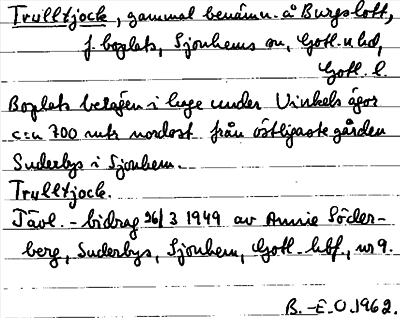 Trulltjock, gammal benämn. å Burgslott,
f. boplats, Sjonhems sn, Gotl. n hd,
Gotl. l.
Boplats belägen i hage under Vinkels ägor
c:a 700 mtr nordost från östligaste gården
Suderbys i Sjonhem.
Trulltjock.
Tävl.-bidrag 26/3 1949 av Annie Söder-
berg, Suderbys, Sjonhem, Gotl. hbf., nr 9.
B.-E.O.1962.